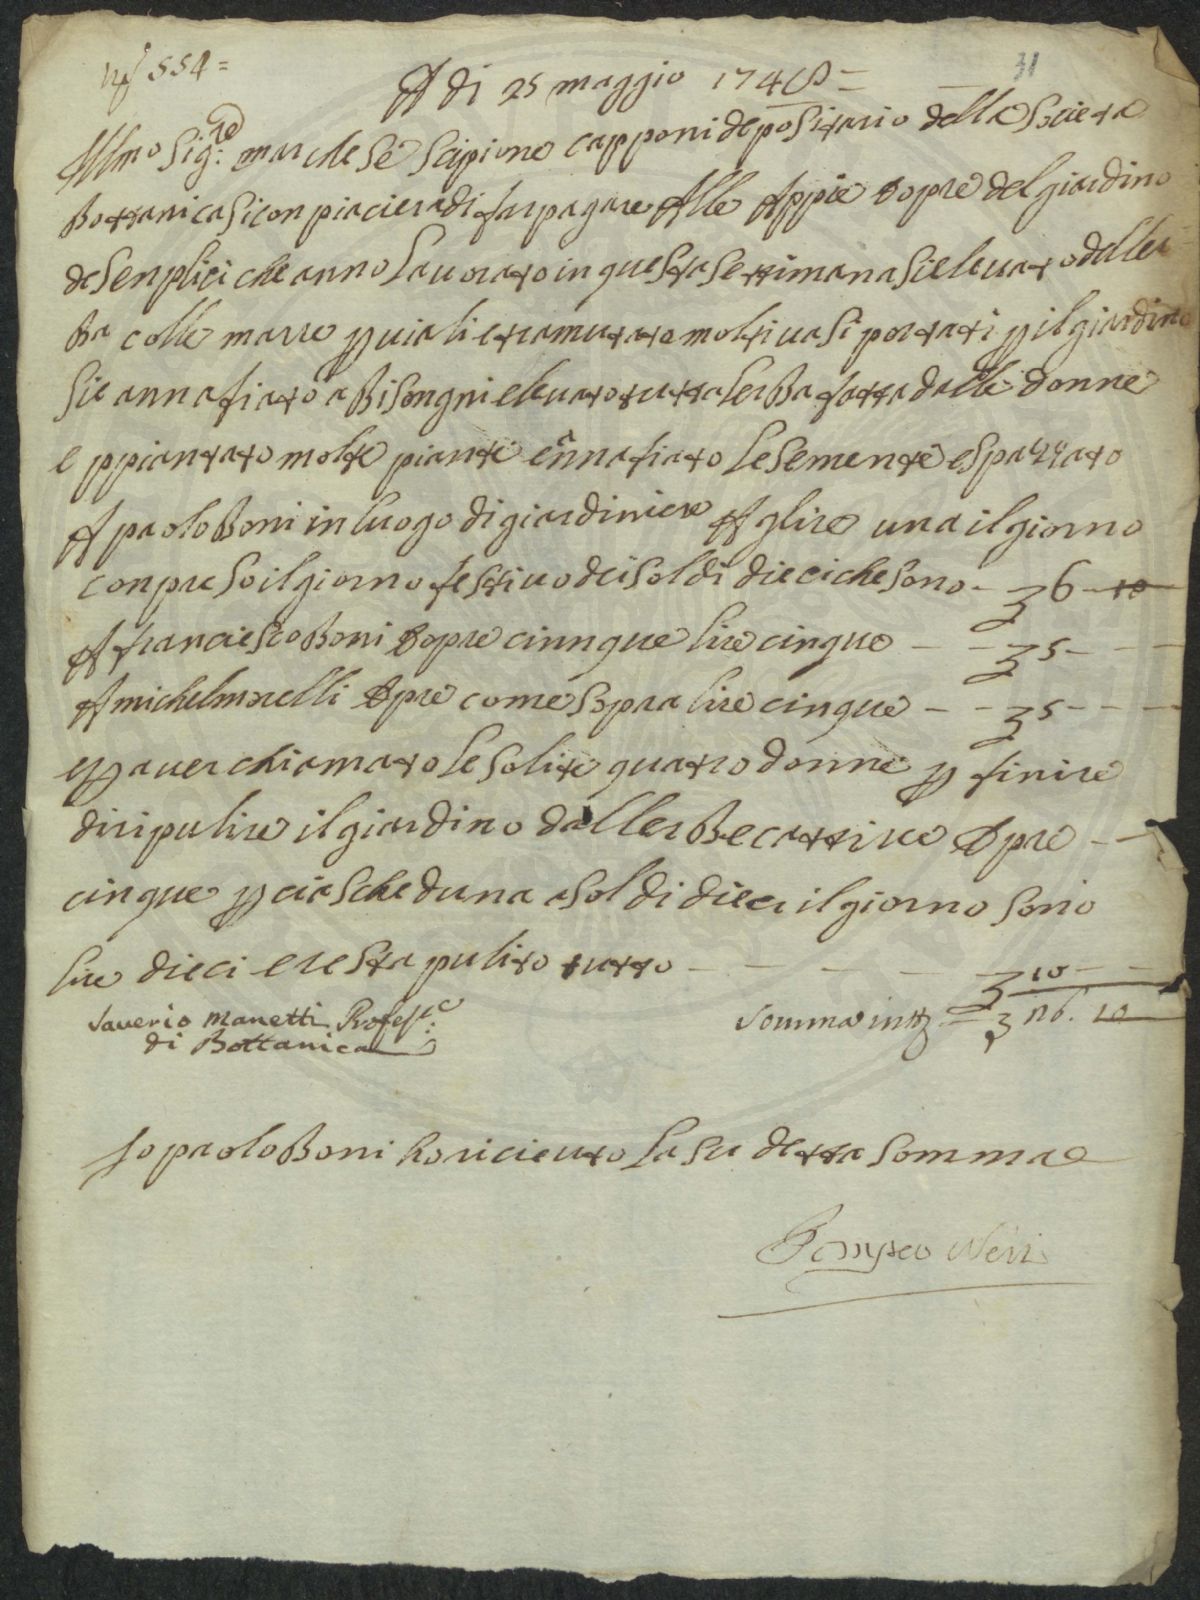 No 554 =
31
A di 25 maggio 1748 =
Illmo Sig:re marchese Scipione capponi depositario della Societa
Bottanica si conpiaciera di far pagare Alle Appie Sopre del giardino
de Senplici che anno Lauorato in questa Settimana sie leuato deller
Ba colle marre p uiali e tramutato molti uasi portati p il giardino
Sie annafiato a Bisongni e leuato tutta lerBa fatta dalle donne
e ppiantato molte piante e annafiato Le semente e spazzato
A paolo Boni in luogo di giardiniere A lire una il giorno
conpreso il giorno festiuo dei soldi dieci che sono - 6 - 10
A franciesco Boni Sopre cinnque lire cinque - - 5 - - -
A michel morelli Opre come sopra lire cinque - - 5 - - -
e p auer chiamato Le solite quatro donne p finire
di ripulire il giardino dallerBe cattiue Opre - -
cinque p ciascheduna a soldi dieci il giorno sono
lire dieci e resta pulito tutto - - - - - 10 - -
Saverio Manetti Profess:e
di Bottanica
Somma in tt = 26. 10
Io paolo Boni ho riceuto La su detta somma
Pompeo Neri